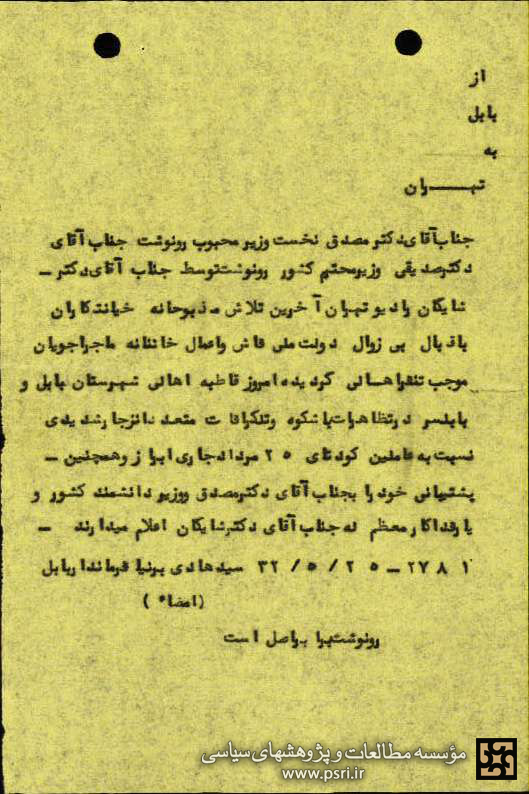 از
بابل
به
تهــــران
جناب آقای دکتر مصدق نخست وزیر محبوب رونوشت جناب آقای
دکتر صدیقی وزیر محترم کشور رونوشت توسط جناب آقای دکتر ـ
شایگان رادیو تهران آخرین تلاش مذبوحانه خیانتکاران
باقبال بی زوال دولت ملی فاش و اعمال خائنانه ماجراجویان
موجب تنفر اهالی گردیده امروز قاطبه اهالی شهرستان بابل و
بابلسر در تظاهرات باشکوه و تلگرافات متعدد انزجار شدیدی
نسبت به عاملین کودتای ۲۵ مرداد جاری ابراز و همچنین ـ
پشتیبانی خود را بجناب آقای دکتر مصدق و وزیر دانشمند کشور و
یار فداکار معظم له جناب آقای دکتر شایگان اعلام میدارند ـ
۲۷۸۱ ـ ۳۲/۵/۲۵ سید هادی برنیا فرماندار بابل
(امضاء)
رونوشت برابر اصل است
مؤسسه مطالعات و پژوهشهای سیاسی
www.psri.ir